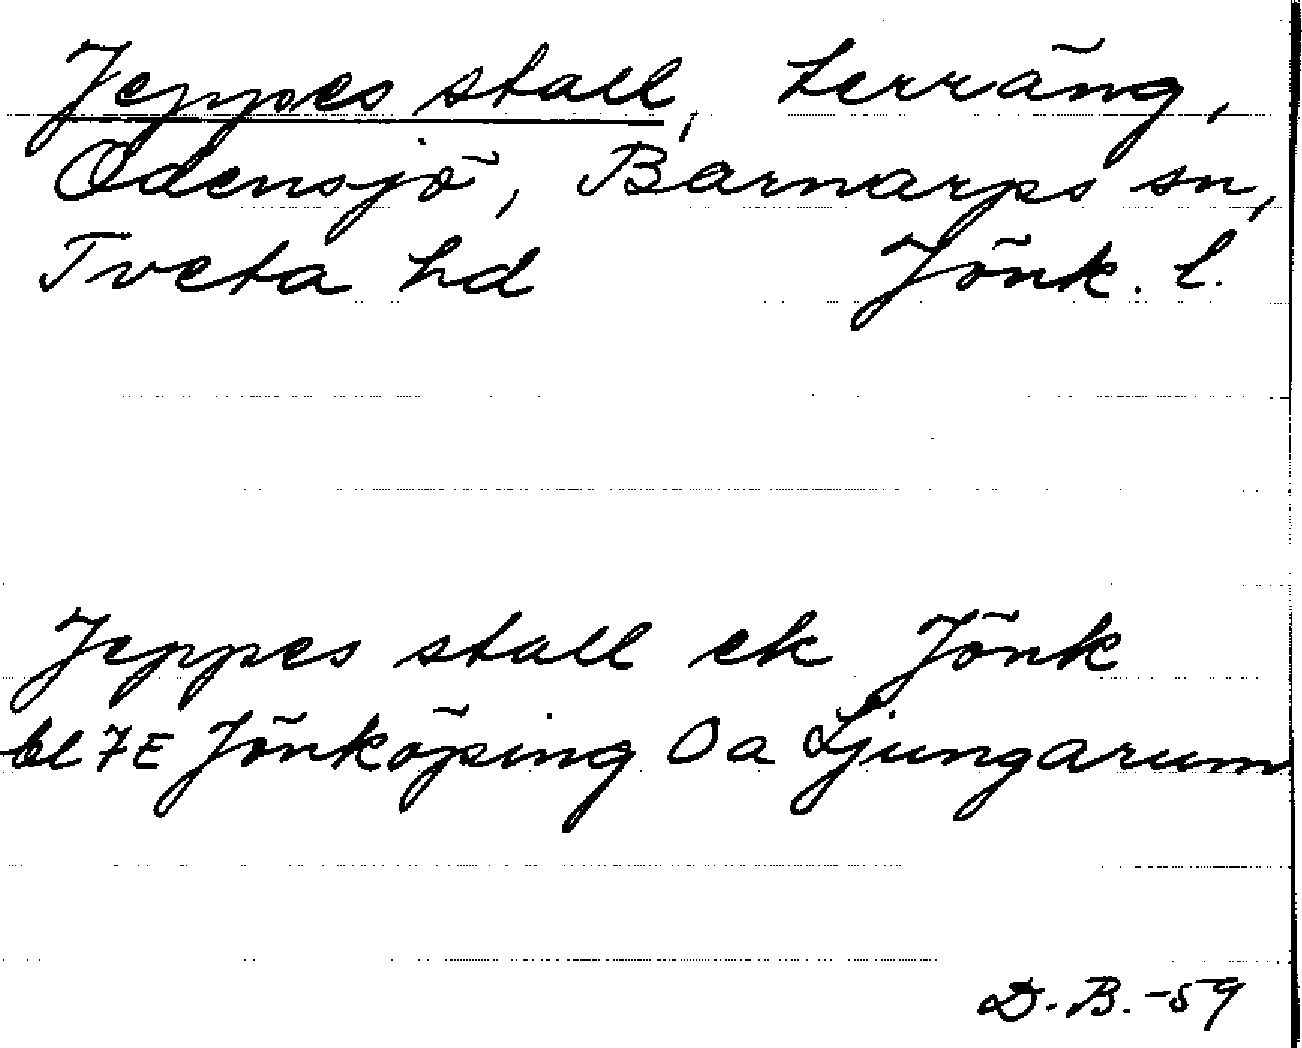 Jeppes stall, terräng,
Odensjö, Barnarps sn,
Tveta hd Jönk. l.
Jeppes stall ek Jönk
bl 7E Jönköping Oa Ljungarum
D.B. -59